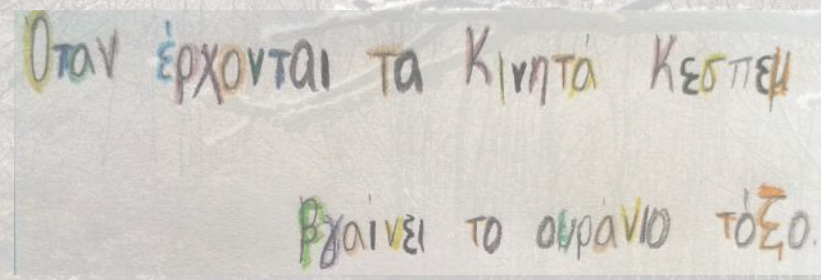 Όταν έρχονται τα Κινητά Κεσπεμ
βγαίνει το ουράνιο τόξο.